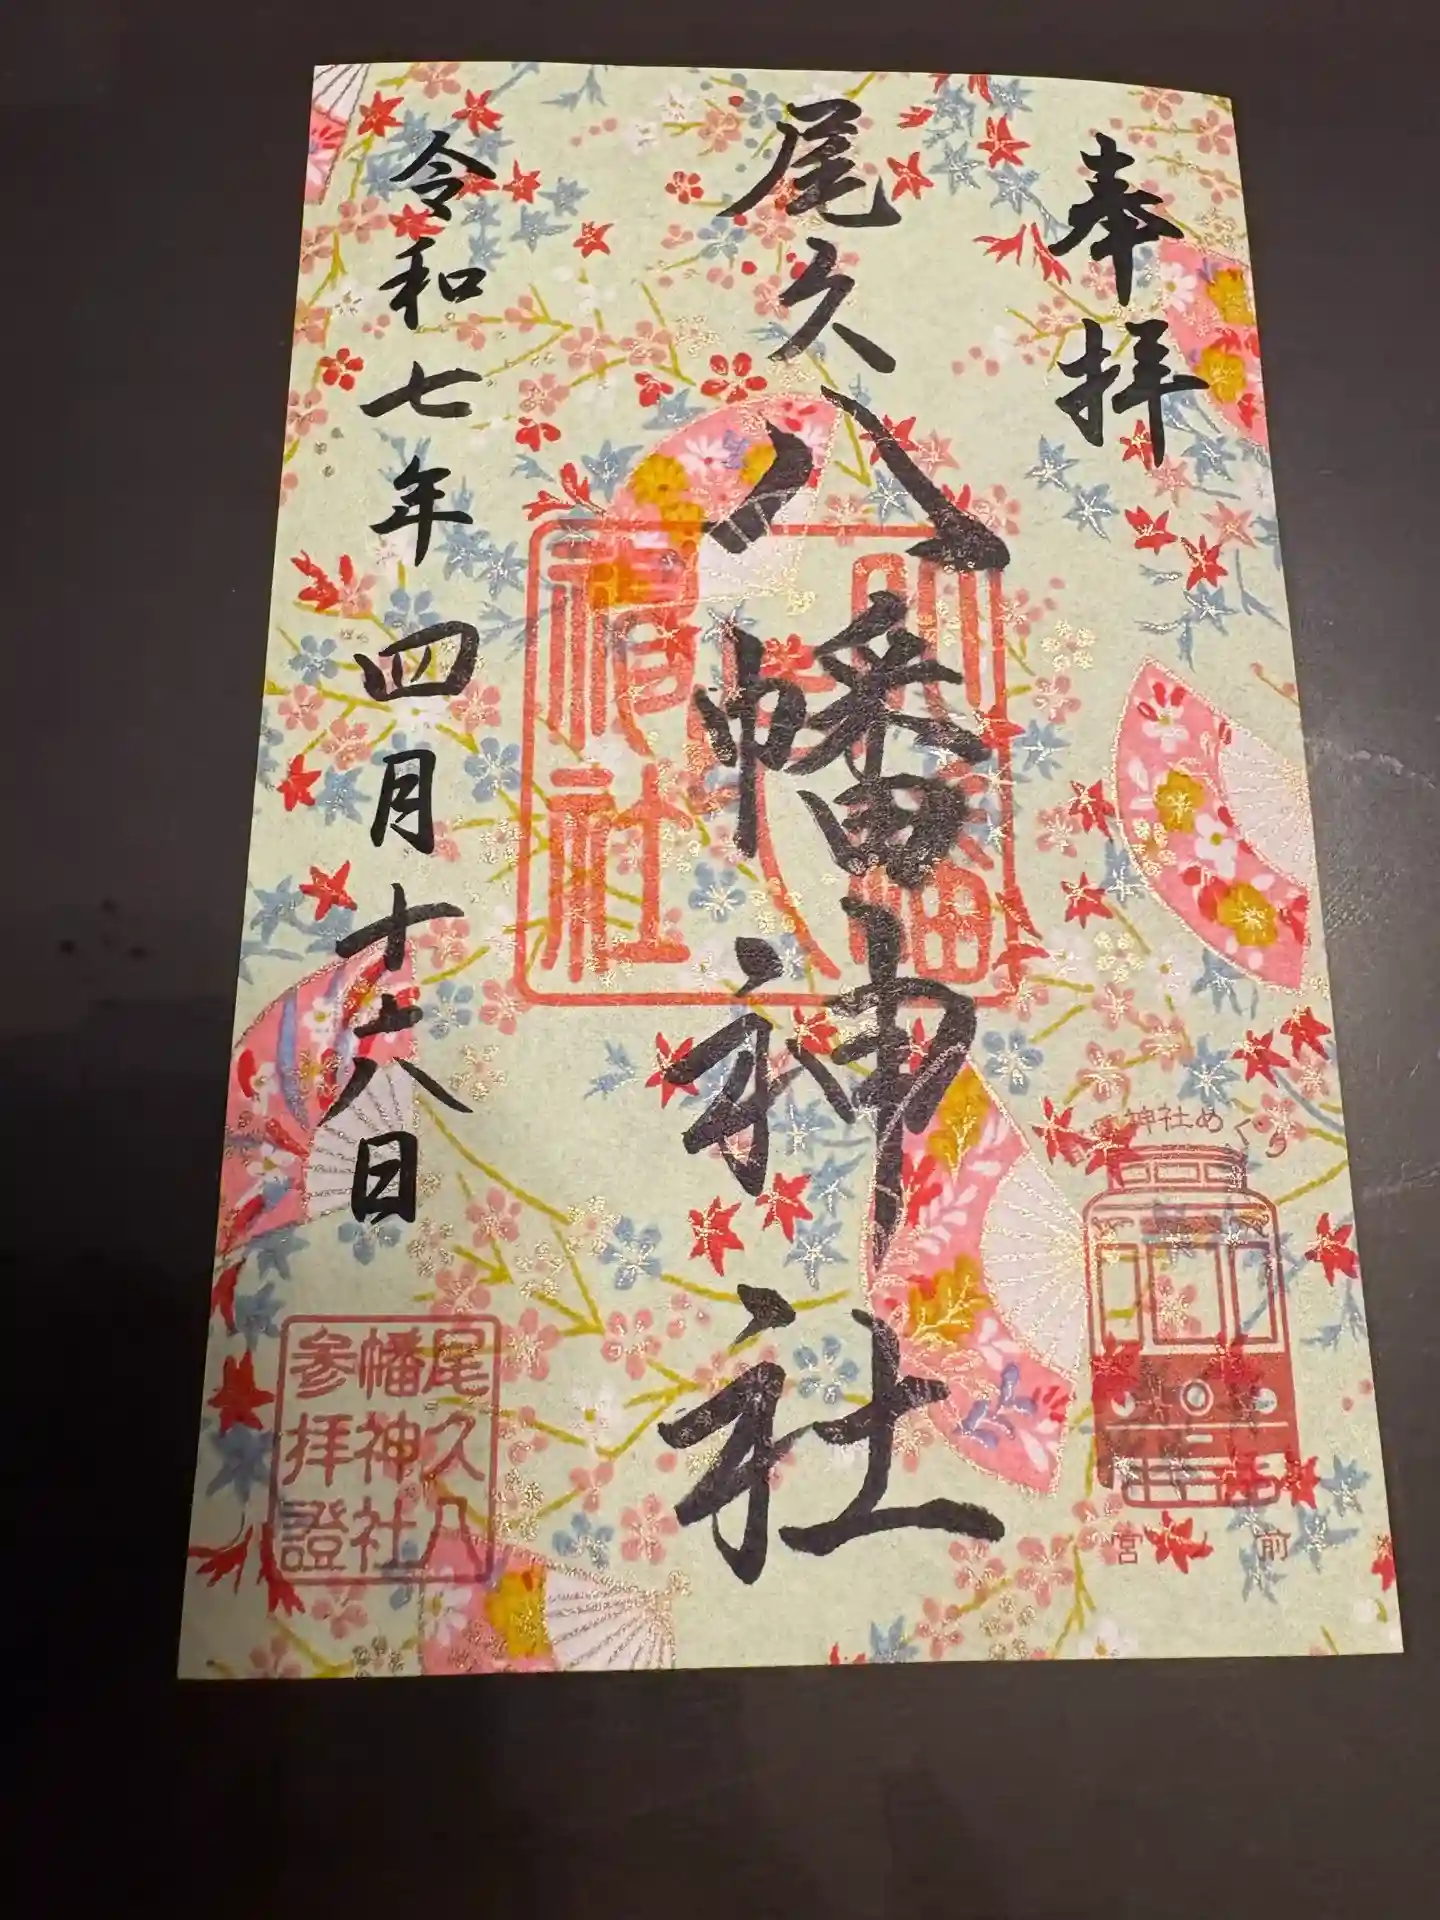 奉拝
神社めぐり
宮ノ前
尾久八幡神社
八幡
神社
令和七年四月十六日
尾久八
幡神社
参拝證